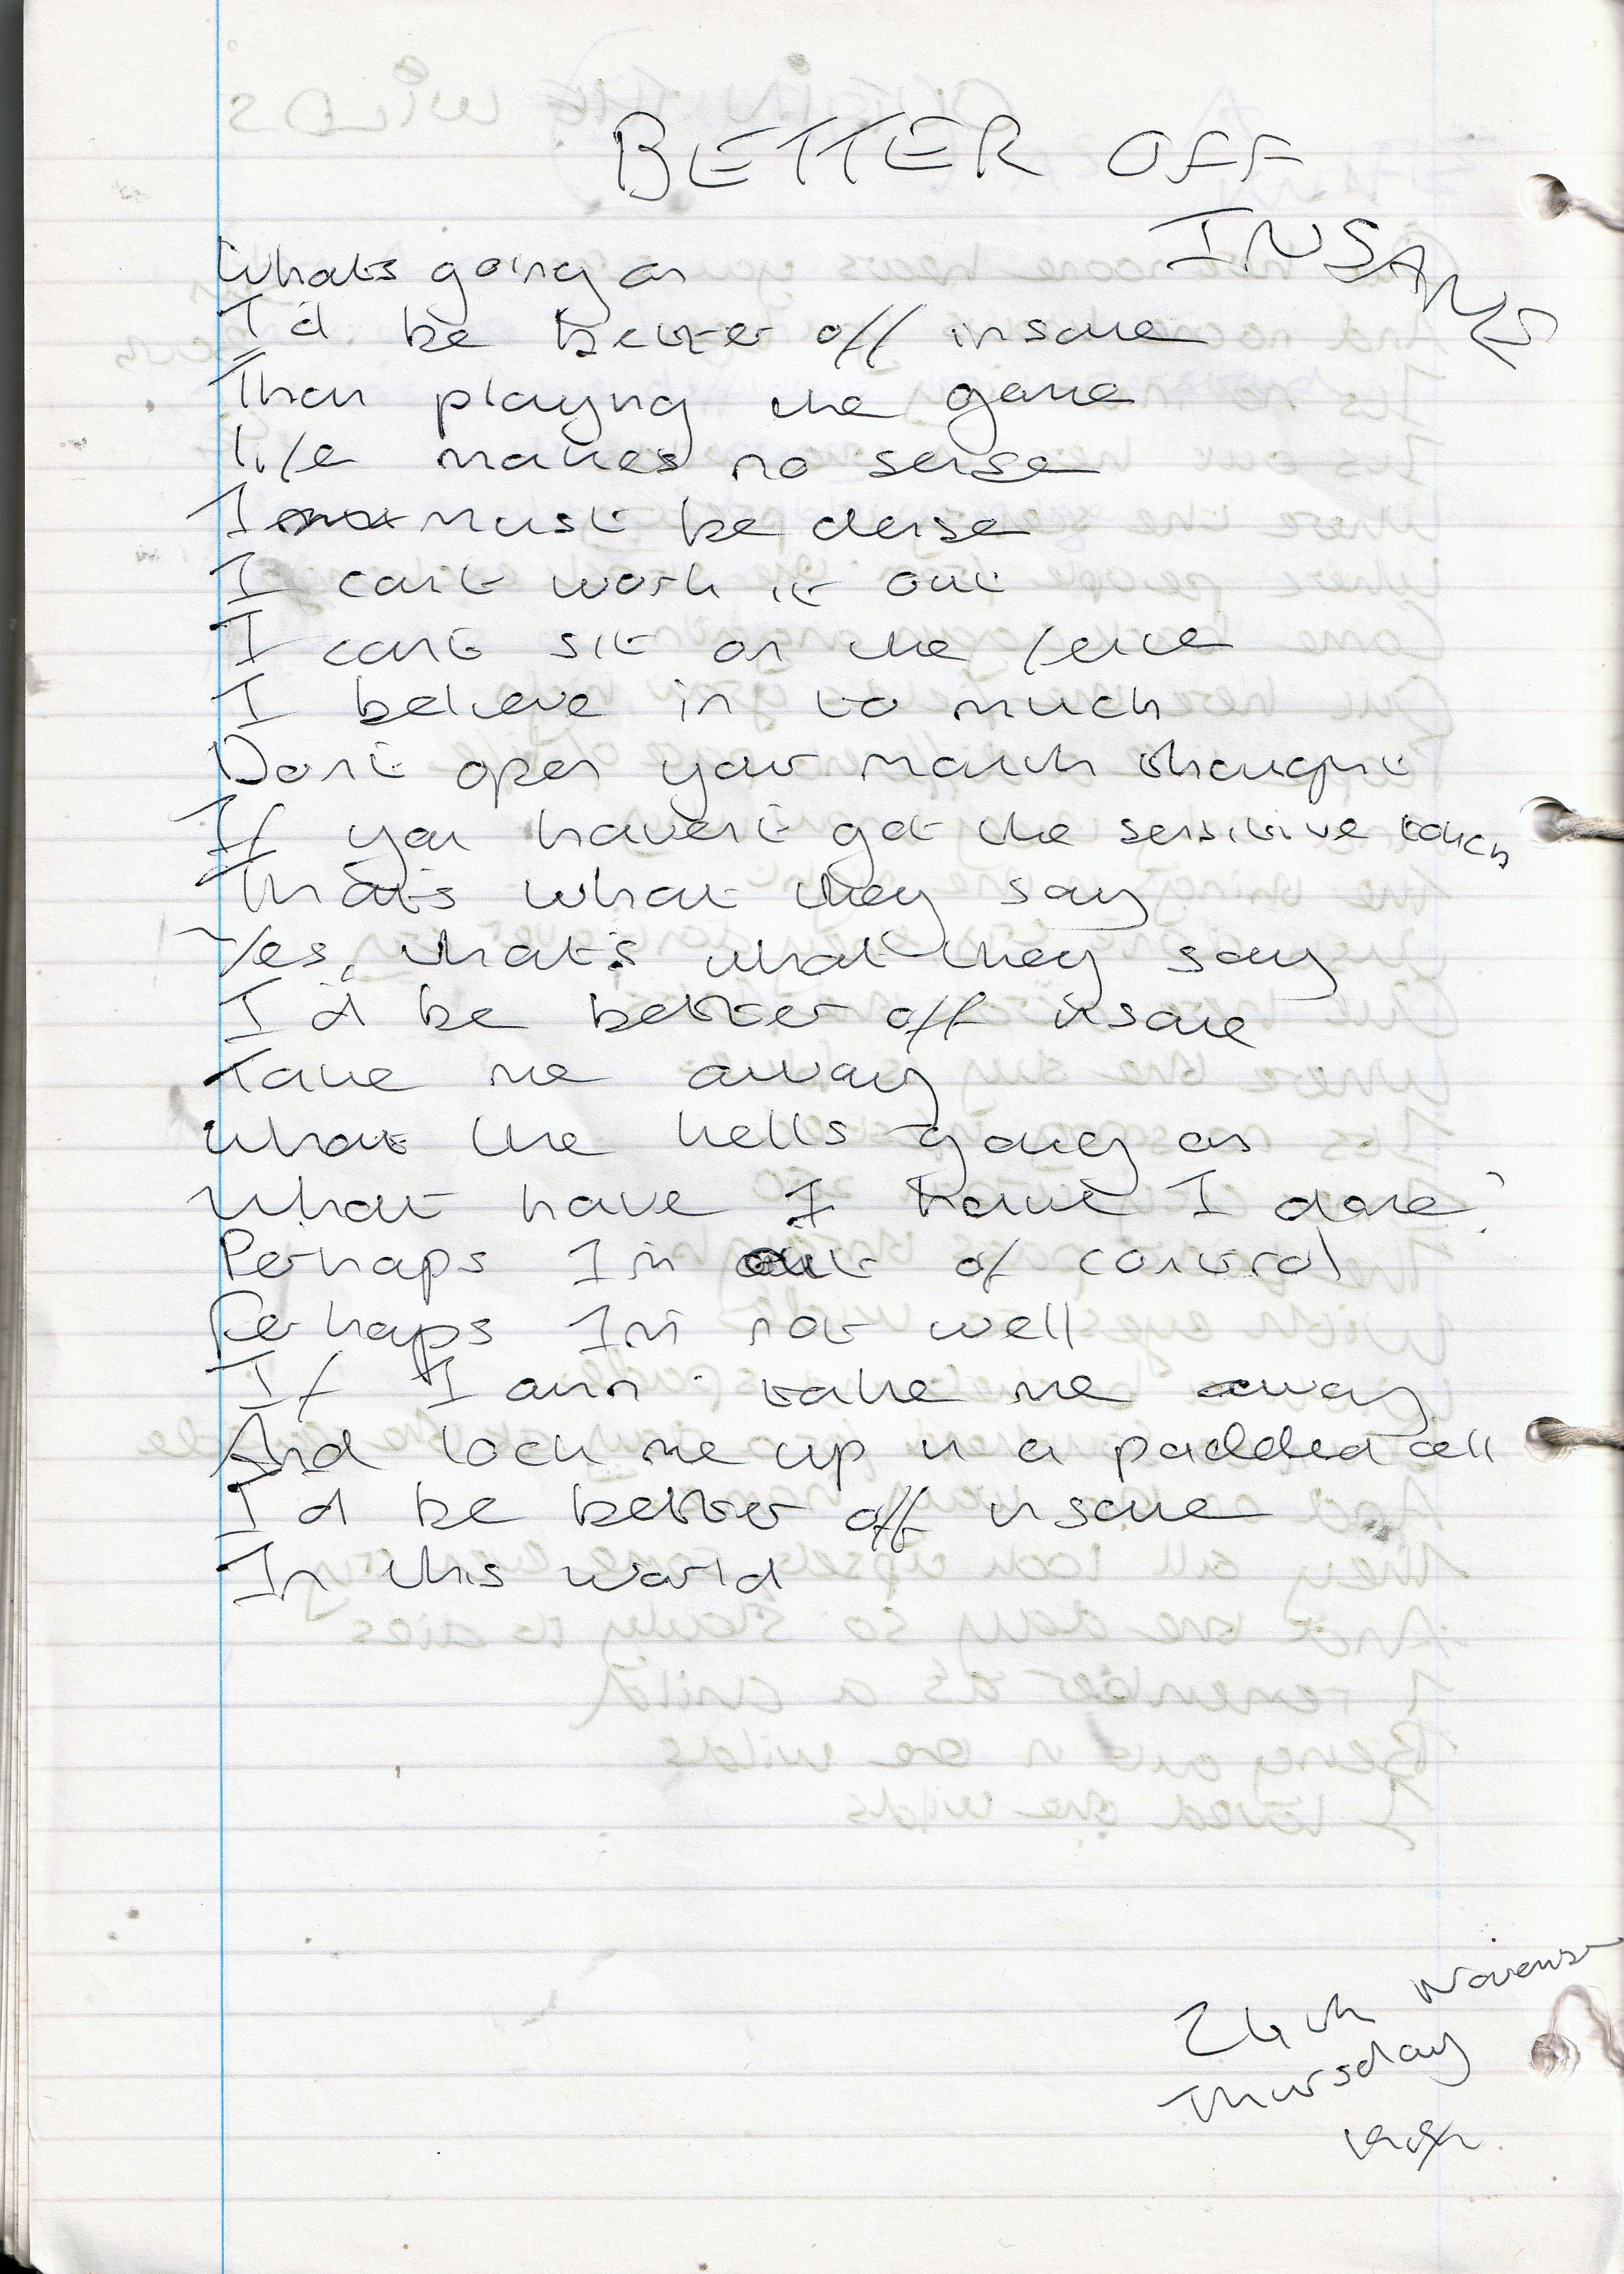 BETTER OFF
INSANE
Whats going on
I'd be better off insane
Than playing the game
life makes no sense
I must be dense
I cant work it out
I cant sit on the fence
I believe in to much
Dont open your mouth thought
If you haven't got the sensitive touch
Thats what they say
Yes, that's what they say
I'd be better off insane
Take me away
What the hells going on
What have I have I done?
Perhaps I'm out of control
Perhaps I'm not well
If I am take me away
And lock me up in a padded cell
I'd be better off insane
In this world
November
Thursday